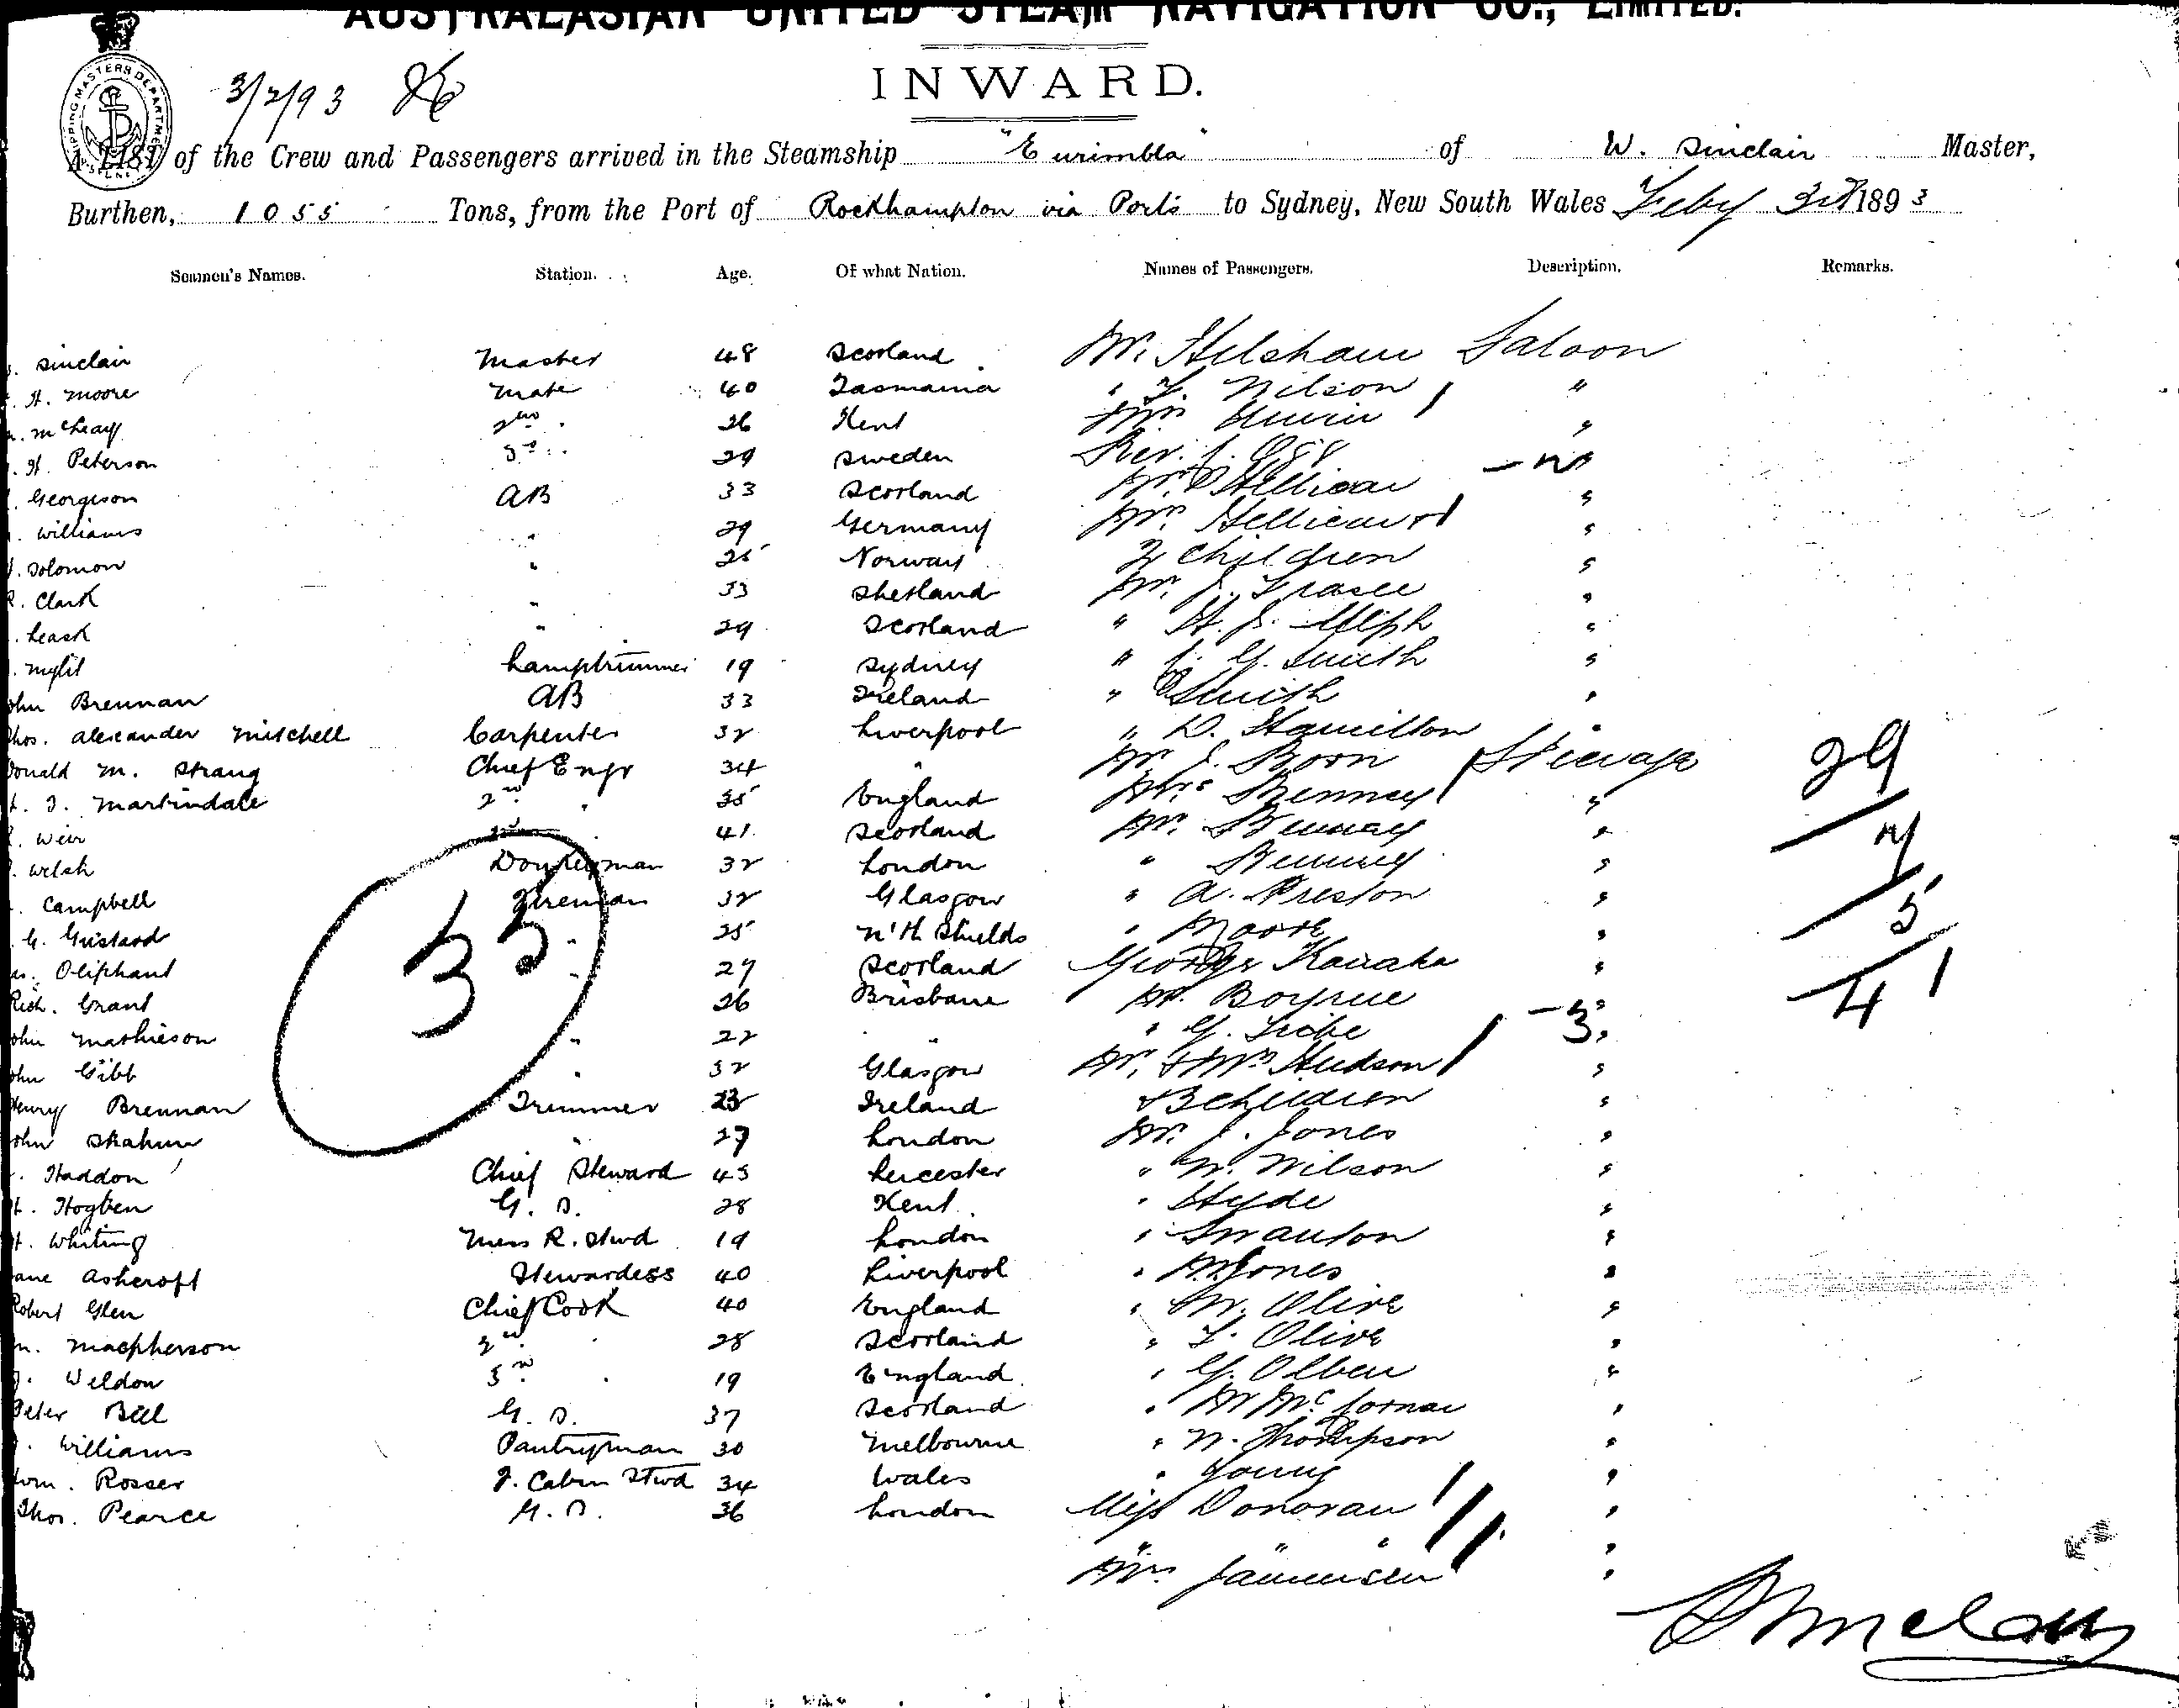 AUSTRALASIAN UNITED STEAM NAVIGATION CO., LIMITED.
INWARD.
SHIPPING MASTERS DEPARTMENT
3/2/93
A LIST of the Crew and Passengers arrived in the Steamship "Eurimbla" of W. Sinclair Master,
Burthen, 1055 Tons, from the Port of Rockhampton via Ports to Sydney, New South Wales Feby 3rd 1893
Seamen's Names. Station. Age. Of what Nation. Names of Passengers. Description. Remarks.
Sinclair Master 48 Scotland Mr. Helsham Saloon
H. Moore Mate 40 Tasmania " F. Nilson "
McLeay 2nd " 26 Kent Mrs "
H. Peterson 3rd " 29 Sweden Rev. J.
Georgeson AB 33 Scotland Mr. Hellicar "
Williams " 29 Germany Mrs. Hellicar & "
Solomon " 25 Norway 2 Children "
Clark " 33 Shetland Mr. J. Frasee "
Leask " 29 Scotland " H. J. "
Lamptrimmer 19 Sydney " G. Smith "
ohn Brennan AB 33 Ireland " Smith "
hos. Alexander Mitchell Carpenter 32 Liverpool " D. Hamilton "
onald M. Strang Chief Engr 34 " Mr J. Boon Steerage 29
J. Martindale 2nd " 35 England Mrs "
Weir 3rd 41 Scotland Mr. " 7
Welsh Donkeyman 32 London " "
Campbell Fireman 32 Glasgow " A. Preston " 5
G. Gustard " 25 N'th Shields " Moore "
Oliphant " 27 Scotland George Kanaka " 41
Rich. Grant 26 Brisbane Mr. "
ohn Mathieson " 22 " " G. 3 "
ohn Gibb " 32 Glasgow Mr. & Mrs Hudson "
Henry Brennan Trimmer 23 Ireland & 3 Children "
ohn Skahun " 27 London Mr. J. Jones "
Haddon Chief Steward 43 Leicester " W. Wilson "
Hogben G. S. 28 Kent " Hyde "
H. Whiting Mess R. Stwd 19 London " Swanton "
ane Ashcroft Stewardess 40 Liverpool " Jones "
Robert Glen Chief Cook 40 England " W. Olive "
Macpherson 2nd " 28 Scotland " F. Olive "
Weldon 3rd " 19 England " G. Olben "
Peter Bell G. S. 37 Scotland " "
Williams Pantryman 30 Melbourne " W. Thompson "
Rosser F. Cabin Stwd 34 Wales " Young "
Thos. Pearce G. S. 36 London Miss Donovan "
" " " "
Mrs. "
35